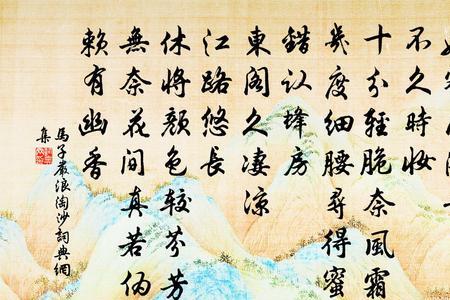 不久時妝
十分輕脆奈風霜
幾度細腰尋得蜜
錯认蜂房
東閣久凄凉
江路悠長
休將顏色較芬芳
無奈花间真若伪
賴有幽香
馬子嚴浪淘沙詞典網
集